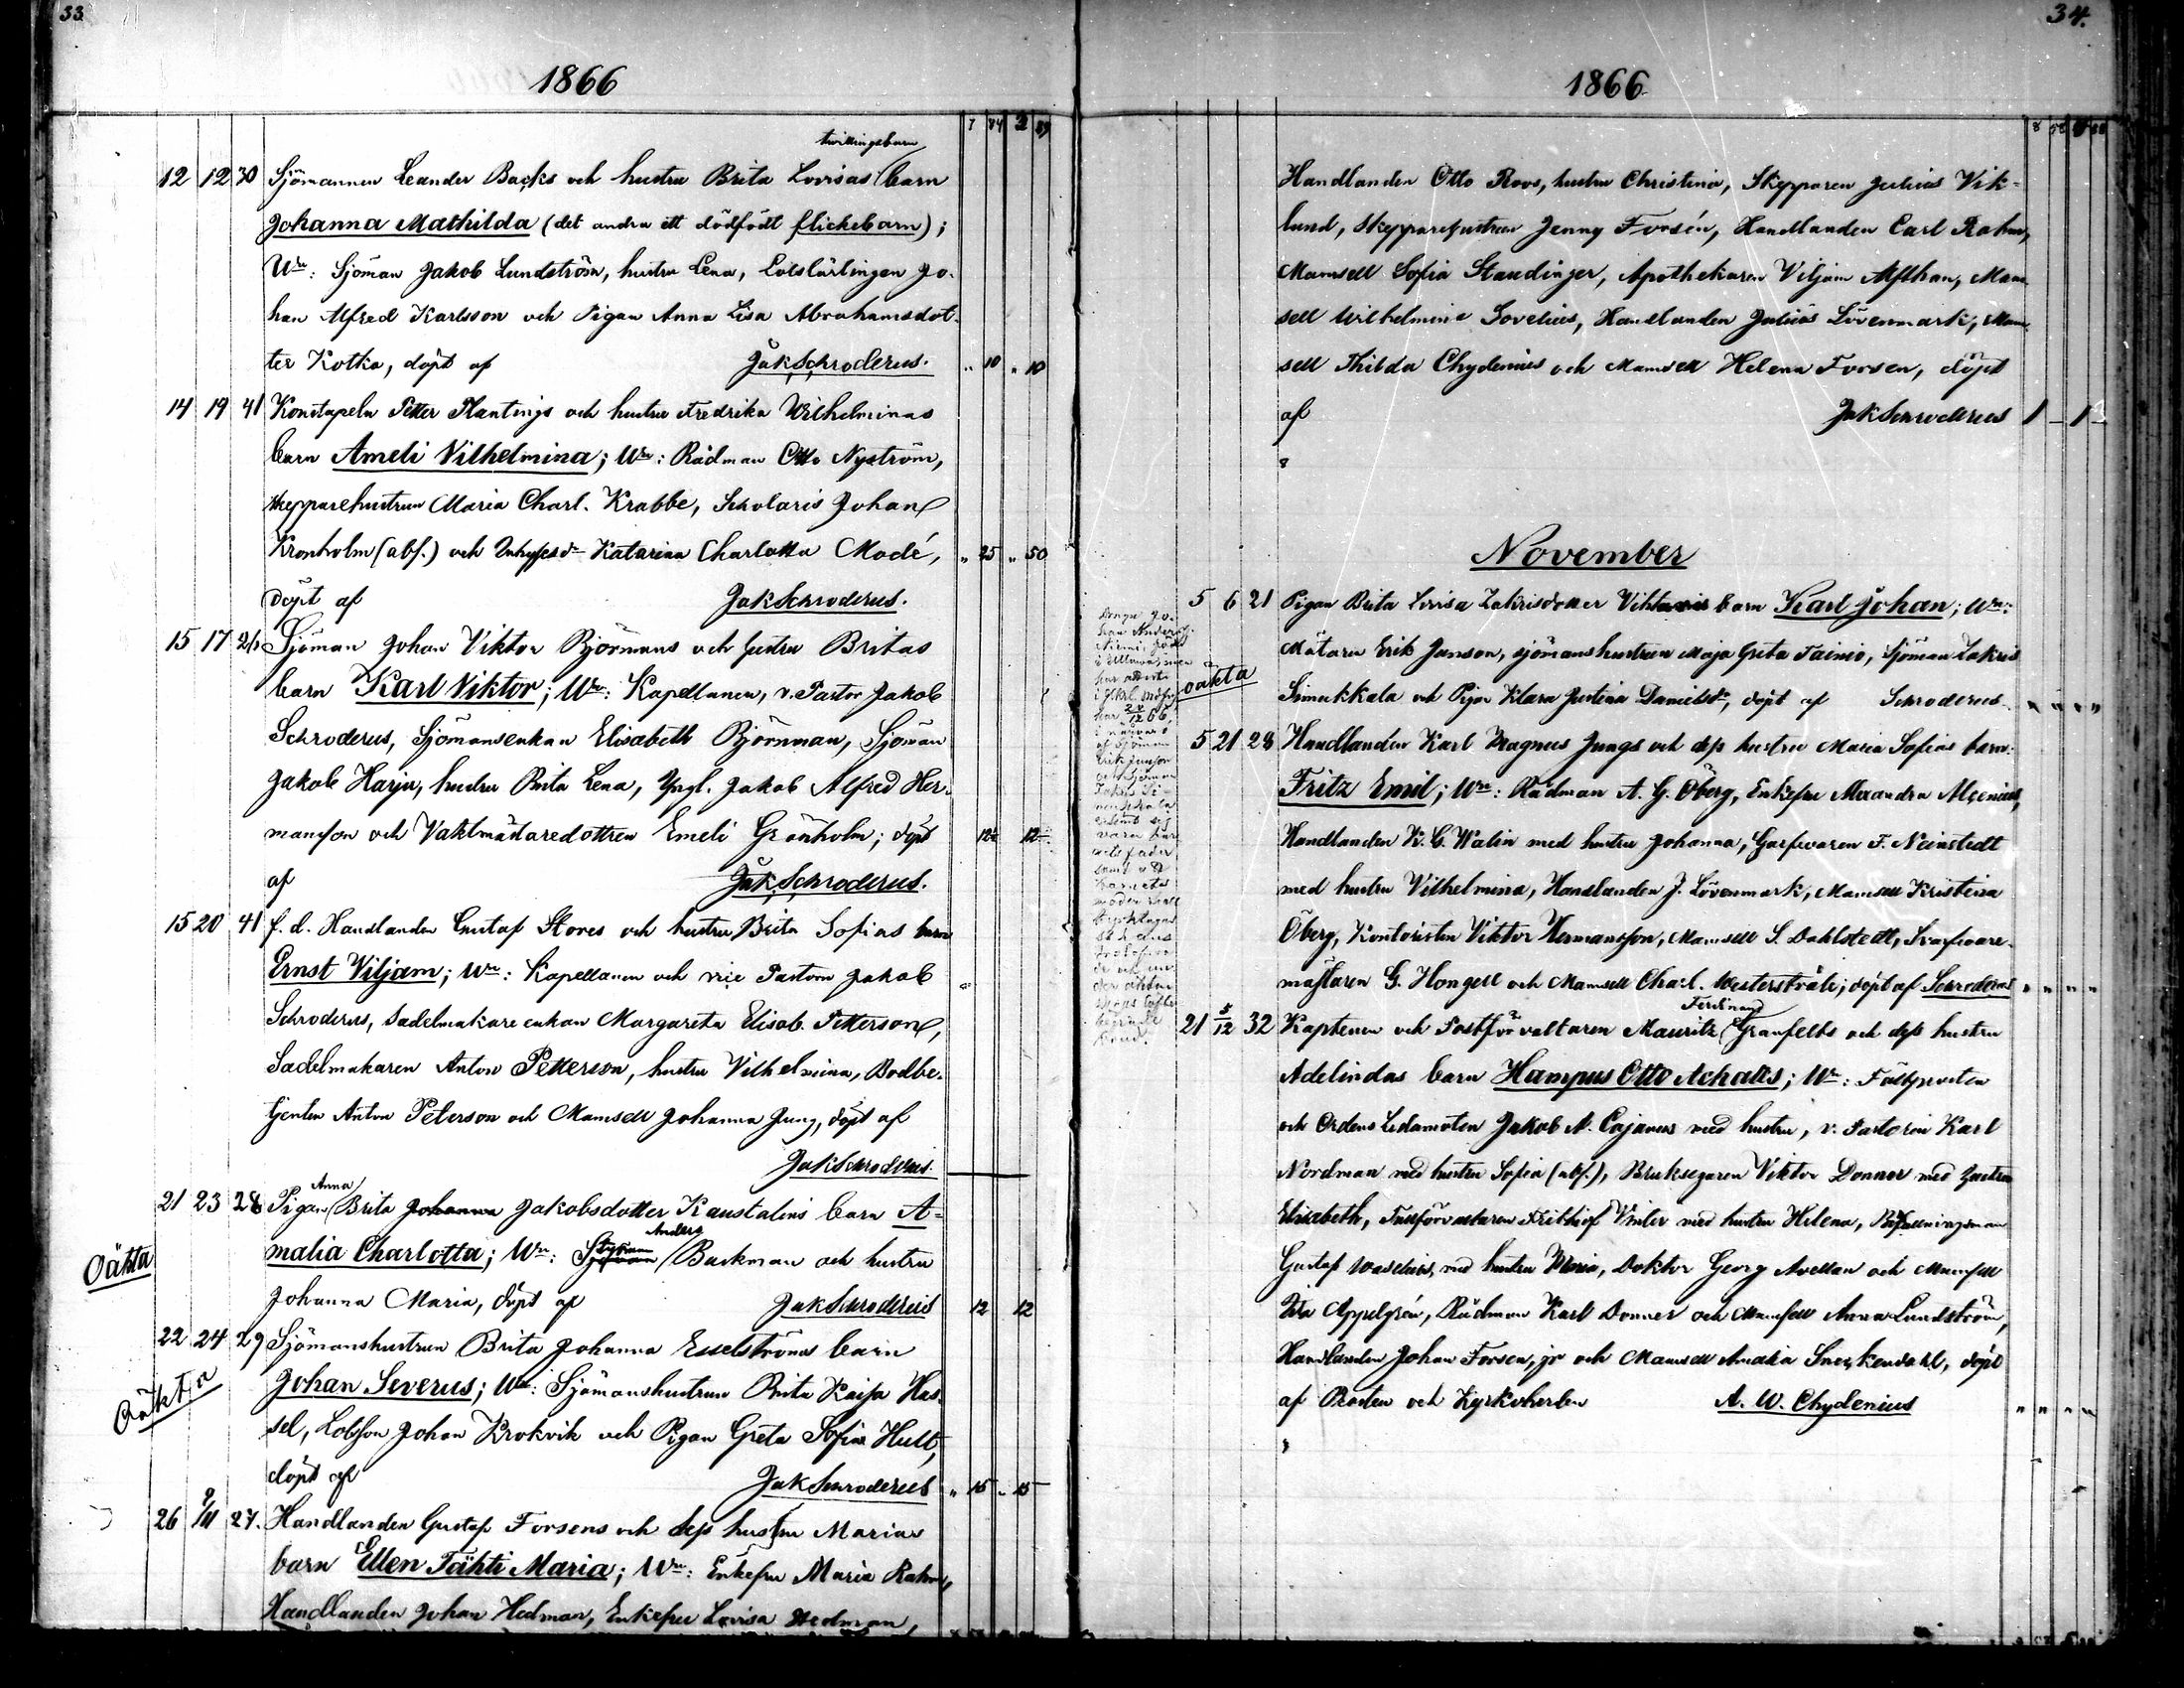 33.
1866
7 84 2 89
tvillingsbarn
12 12 30 Sjömannen Leander Backs och hustru Brita Lovisas barn
Johanna Mathilda (det andra ett dödfödt flickebarn);
Wn: Sjöman Jakob Lundström, hustru Lena, Lotslärlingen Jo-
han Alfred Karlsson och Pigan Anna Lisa Abrahamsdot-
ter Kotka, döpt af JakSchroderus. „ 10 „ 10
14 19 41 Konstapeln Petter Plantings och hustru Fredrika Wilhelminas
barn Ameli Vilhelmina; Wn: Rådman Otto Nyström,
skepparehustrun Maria Charl. Krabbe, Scholaris Johan
Kronholm (abs.) och Katarina Charlotta Modé, „ 25 „ 50
döpt af JakSchroderus.
15 17 Sjöman Johan Viktor Björnmans och hustru Britas
barn Karl Viktor; Wn: Kapellanen, v. Pastor Jakob
Schroderus, Sjömansenkan Elisabeth Björnman, Sjöman
Jakob Harju, hustru Brita Lena, Yngl. Jakob Alfred Her-
mansson och Vaktmästaredottren Emeli Grönholm; döpt 12 12
af JakSchroderus.
15 20 41 f. d. Handlanden Gustaf Stores och hustru Brita Sofias barn
Ernst Viljam; Wn: Kapellanen och vice Pastorn Jakob
Schroderus, Sadelmakare enkan Margareta Elisab. Petterson,
Sadelmakaren Anton Petterson, hustru Vilhelmina, Bodbe-
tjenten Anton Peterson och Mamsell Johanna Jung, döpt af
JakSchroderus.
Anna
21 23 28 Pigan Brita Johanna Jakobsdotter Kaustalins barn A-
Anders
malia Charlotta; Wn: Styrman Backman och hustru
Oäkta
Johanna Maria, döpt af JakSchroderus 12 12
22 24 29 Sjömanshustrun Brita Johanna Esselströms barn
Oäkta
Johan Severus; Wn: Sjömanshustrun Brita Kajsa Has-
sel, Lotsson Johan Krokvik och Pigan Greta Sofia Hult,
döpt af JakSchroderus „ 15 „ 15
26 9/11 27. Handlanden Gustaf Forsens och dess hustru Marias
barn Ellen Tähti Maria; Wn: Enkefru Maria Rahm,
Handlanden Johan Hedman, Enkefru Lovisa Hedman,
34.
1866
Handlanden Otto Roos, hustru Christina, Skepparen Julius Vik-
lund, Skepparehustrun Jenny Forsén, Handlanden Carl Rahm,
Mamsell Sofia Standinger, Apothekaren Viljam Alfthan, Mam-
sell Wilhelmina Sovelius, Handlanden Julius Lövenmark, Mam-
sell Thilda Chydenius och Mamsell Helena Forsen, döpt
af JakSchroderus 1 – 1 –
November
5 6 21 Pigan Brita Lovisa Zakrisdotter barn Karl Johan; Wn:
Mätaren Erik Janson, sjömanshustrun Maja Greta Tainio, Sjöman Zakris
oäkta
Simukkala och Pigan Klara Justina Danielsdr, döpt af Schroderus „ „ „ „
5 21 28 Handlanden Karl Magnus Jungs och dess hustru Maria Sofias barn
Fritz Emil; Wn: Rådman A. G. Öberg, Enkefru Alexandra Alcenius,
Handlanden K. G. Walin med hustru Johanna, Garfvaren F. Neinstedt
med hustru Vilhelmina, Handlanden J. Lövenmark, Mamsell Kristina
Öberg, Kontoristen Viktor Hermansson, Mamsell S. Dahlstedt, Svarfvare-
mästaren G. Hongell och Mamsell Charl. Westerstråle; döpt af Schroderus „ „ „ „
Ferdinand
21 5/12 32 Kaptenen och Postförvaltaren Mauritz Granfelts och dess hustru
Adelindas barn Hampus Otto Achates; Wn: Fältprosten
och Ordens Ledamoten Jakob A. Cajanus med hustru, v. Pastorn Karl
Nordman med hustru Sofia (abs.), Bruksegaren Viktor Donner med hustru
Elisabeth, Tullförvaltaren Frithiof Vinter med hustru Helena, Befallningsman
Gustaf Vaselius, med hustru Maria, Doktor Georg Avellan och Mamsell
Appelgrén, Rådman Karl Donner och Mamsell Anna Lundström,
Handlanden Johan Forsen, jr och Mamsell Amalia Sneckendahl, döpt
af Prosten och Kyrkoherden A. W. Chydenius „ „ „ „